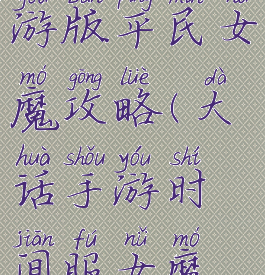 游版平民女
mó gōng lüè dà
魔攻略(大
huà shǒu yóu shí
话手游时
jiān fú nǚ mó
间服女魔